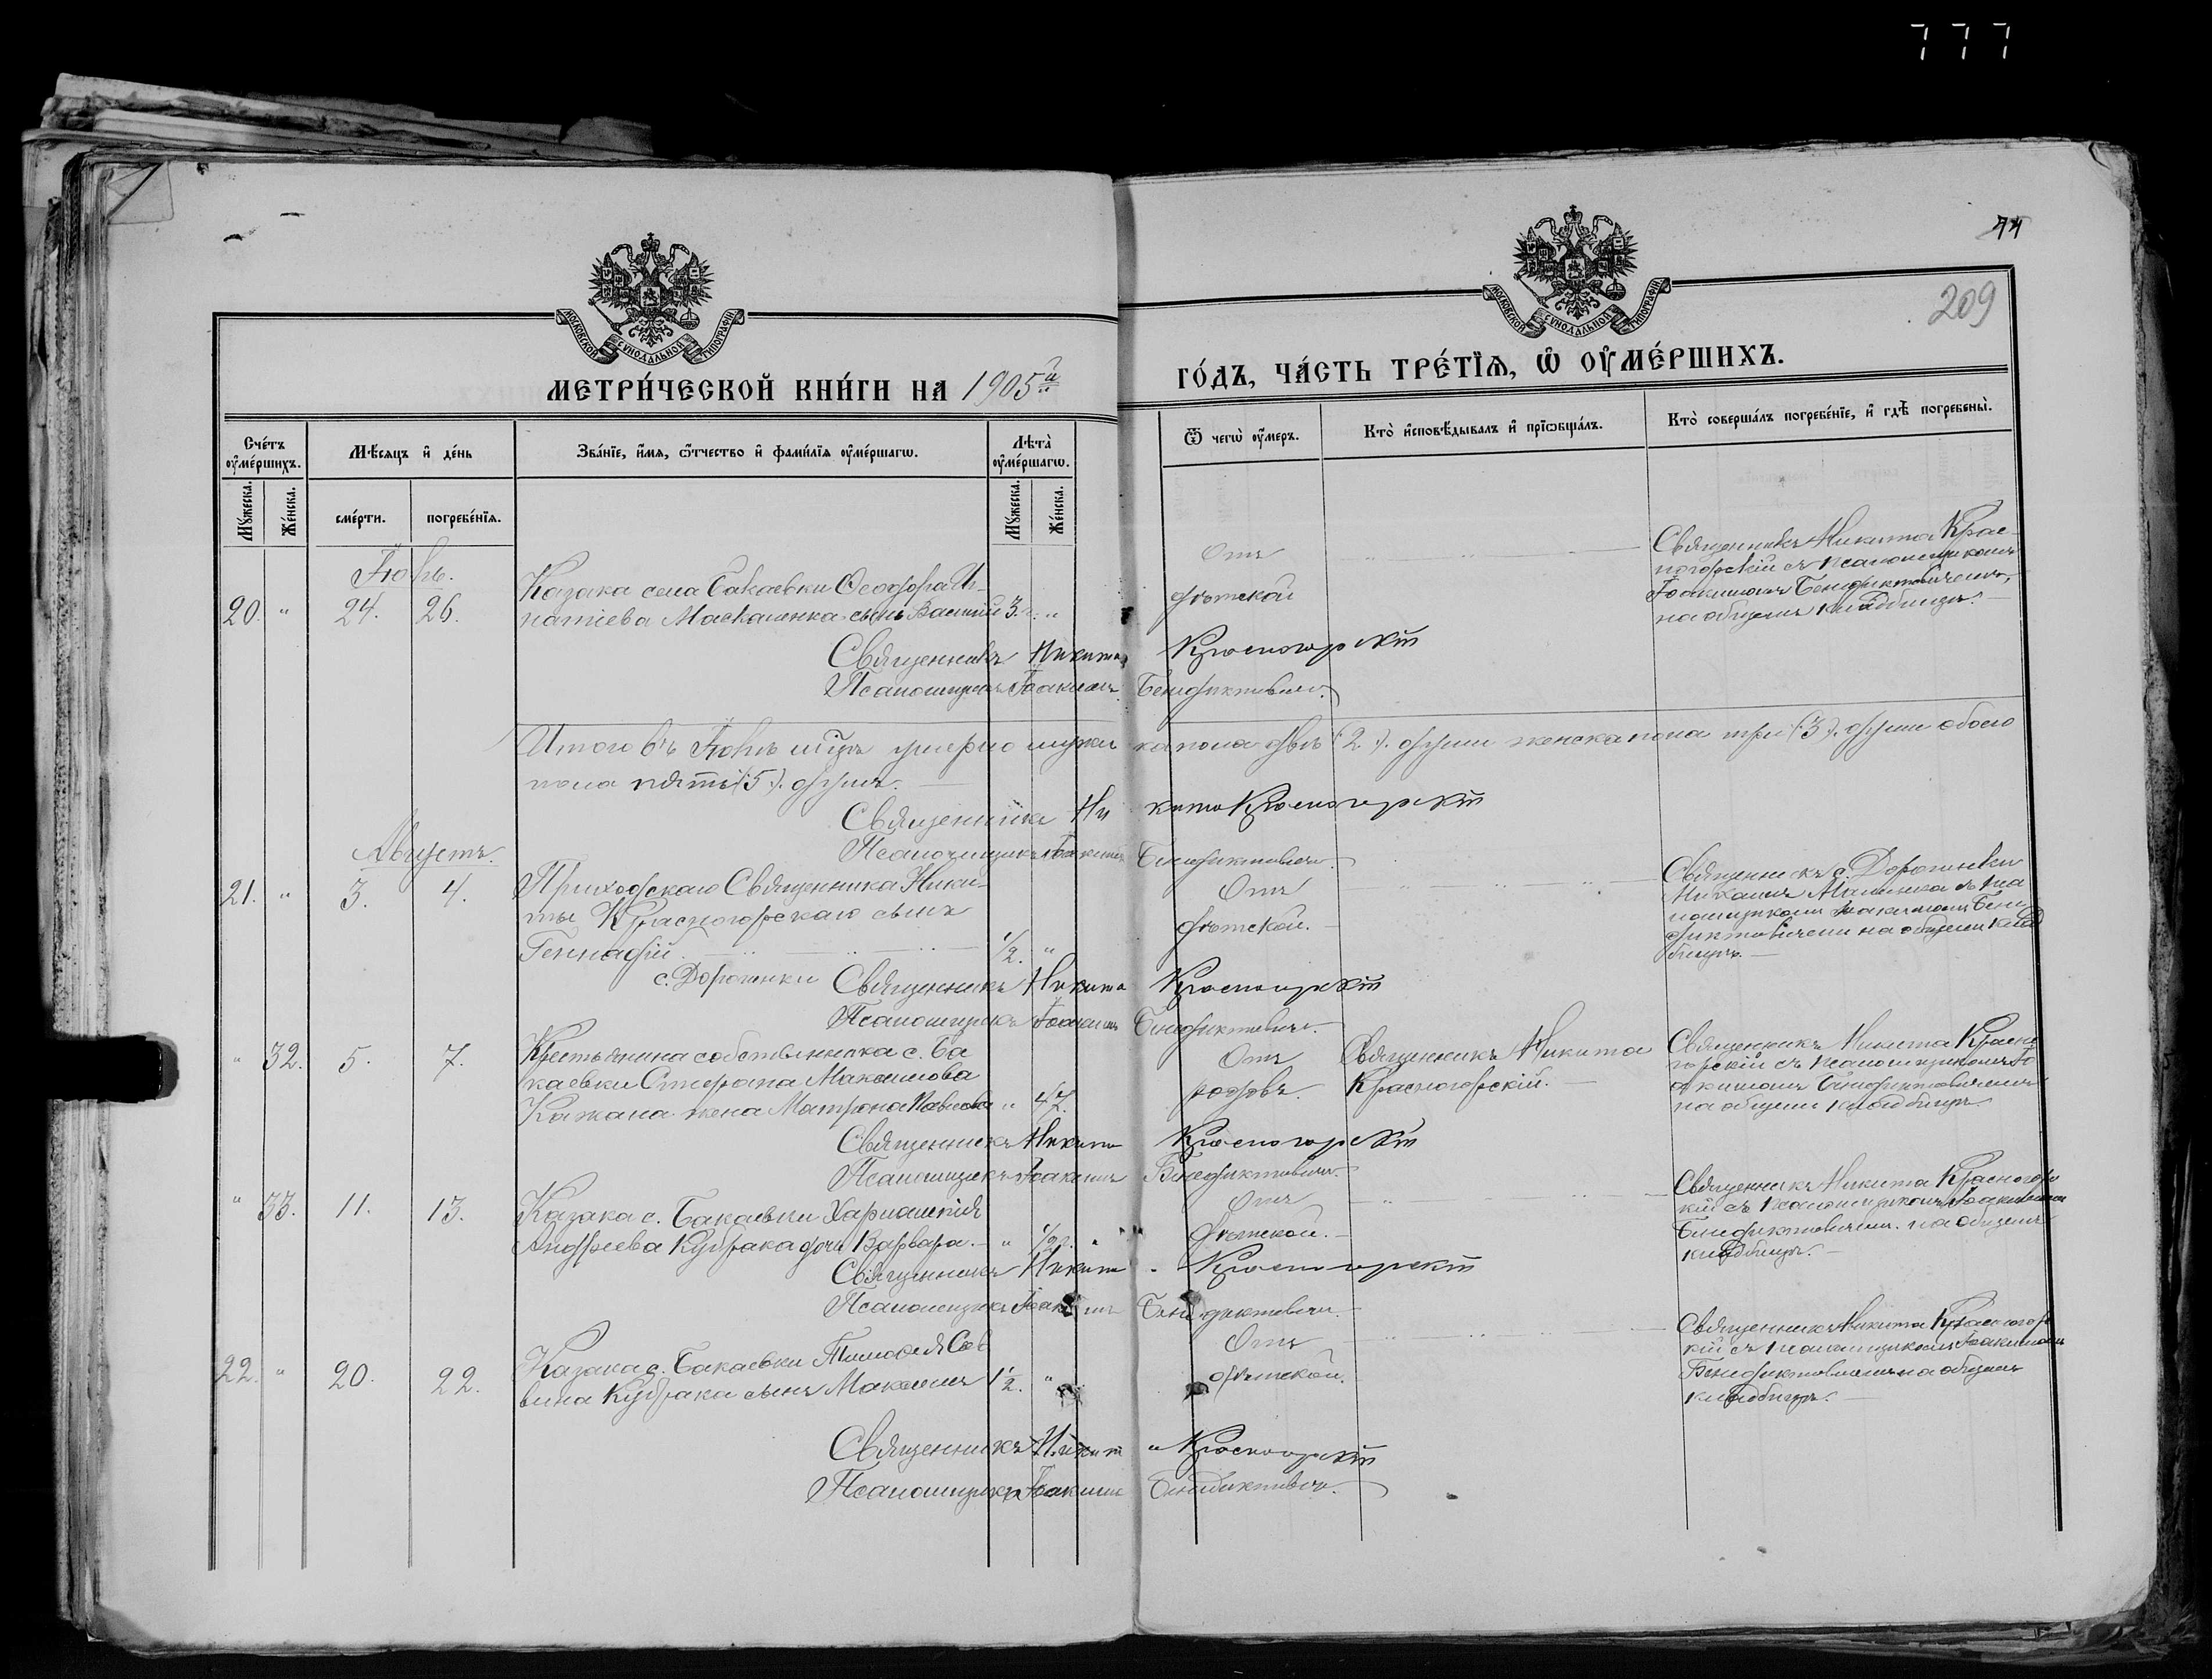 777
44
209
МОСКОВСКОЙ СѴНОДАЛЬНОЙ ТИПОГРАФІИ
МОСКОВСКОЙ СѴНОДАЛЬНОЙ ТИПОГРАФІИ
МЕТРИ́ЧЕСКОЙ КНИ́ГИ НА 1905й
ГО́ДЪ, ЧА́СТЬ ТРЕ́ТЇѦ, Ѽ ОУ҆МЕ́РШИХЪ.
Сче́тъ оу҆ме́ршихъ.
Мѣ́сѧцъ и҆ де́нь
Зва́нїе, и҆́мѧ, ѻ҆́тчество и҆ фами́лїѧ оу҆ме́ршагѡ.
Лѣта̀ оу҆ме́ршагѡ.
Ѿ чегѡ̀ оу҆́меръ.
Кто̀ и҆сповѣ́дывалъ и҆ прїѡбща́лъ.
Кто̀ соверша́лъ погребе́нїе, и҆ гдѣ̀ погребены̀.
Мꙋ́жеска.
Же́нска.
сме́рти.
погребе́нїѧ.
Мꙋ́жеска.
Же́нска.
Іюль.
20. " 24. 26.
Казака села Бакаевки Ѳеодора Иг-
натіева Маскаленка сынъ Василій 3. "
Отъ
дѣтской
Священникъ Никита Крас-
ногорскій съ псаломщикомъ
Іоакимомъ Бенедиктовичемъ,
на общемъ кладбищѣ.
Священникъ Никита Красногорскій
Псаломщикъ Іоакимъ Бенедиктовичъ.
Итого въ Іюлѣ м-цѣ умерло мужска пола двѣ (2). души женска пола три (3). души обоего
пола пять (5). душъ.
Священникъ Никита Красногорскій
Псаломщикъ Іоакимъ Бенедиктовичъ.
Августъ.
21. " 3. 4.
Приходскаго Священника Ники-
ты Красногорскаго сынъ
Геннадій 1/2. "
Отъ
дѣтской.
Священникъ с. Дорогинки
Михаилъ съ пса
ломщикомъ Іоакимомъ Бене
диктовичемъ на общемъ клад
бищѣ.
с. Дорогинки Священникъ Никита Красногорскій
Псаломщикъ Іоакимъ Бенедиктовичъ.
" 32. 5. 7.
Крестьянина собственника с. Ба
каевки Стефана Максимова
Кажана жена Матрона Павлова " 47.
Отъ
родовъ.
Священникъ Никита
Красногорскій.
Священникъ Никита Красно
горскій съ псаломщикомъ Іо
акимомъ Бенедиктовичемъ
на общемъ кладбищѣ.
Священникъ Никита Красногорскій
Псаломщикъ Іоакимъ Бенедиктовичъ.
" 33. 11. 13.
Казака с. Бакаевки Харлампія
Андреева Кубрака дочь Варвара. " 1/2.
Отъ
дѣтской.
Священникъ Никита Красногорс
кій съ псаломщикомъ Іоакимомъ
Бенедиктовичемъ. на общемъ
кладбищѣ.
Священникъ Никита Красногорскій
Псаломщикъ Іоакимъ Бенедиктовичъ.
22. " 20. 22.
Казака с. Бакаевки Тимофея Сав
вина Кубрака сынъ Максимъ 1 1/2. "
Отъ
дѣтской.
Священникъ Никита Красногорс
кій съ псаломщикомъ Іоакимомъ
Бенедиктовичемъ на общемъ
кладбищѣ.
Священникъ Никита Красногорскій
Псаломщикъ Іоакимъ Бенедиктовичъ.